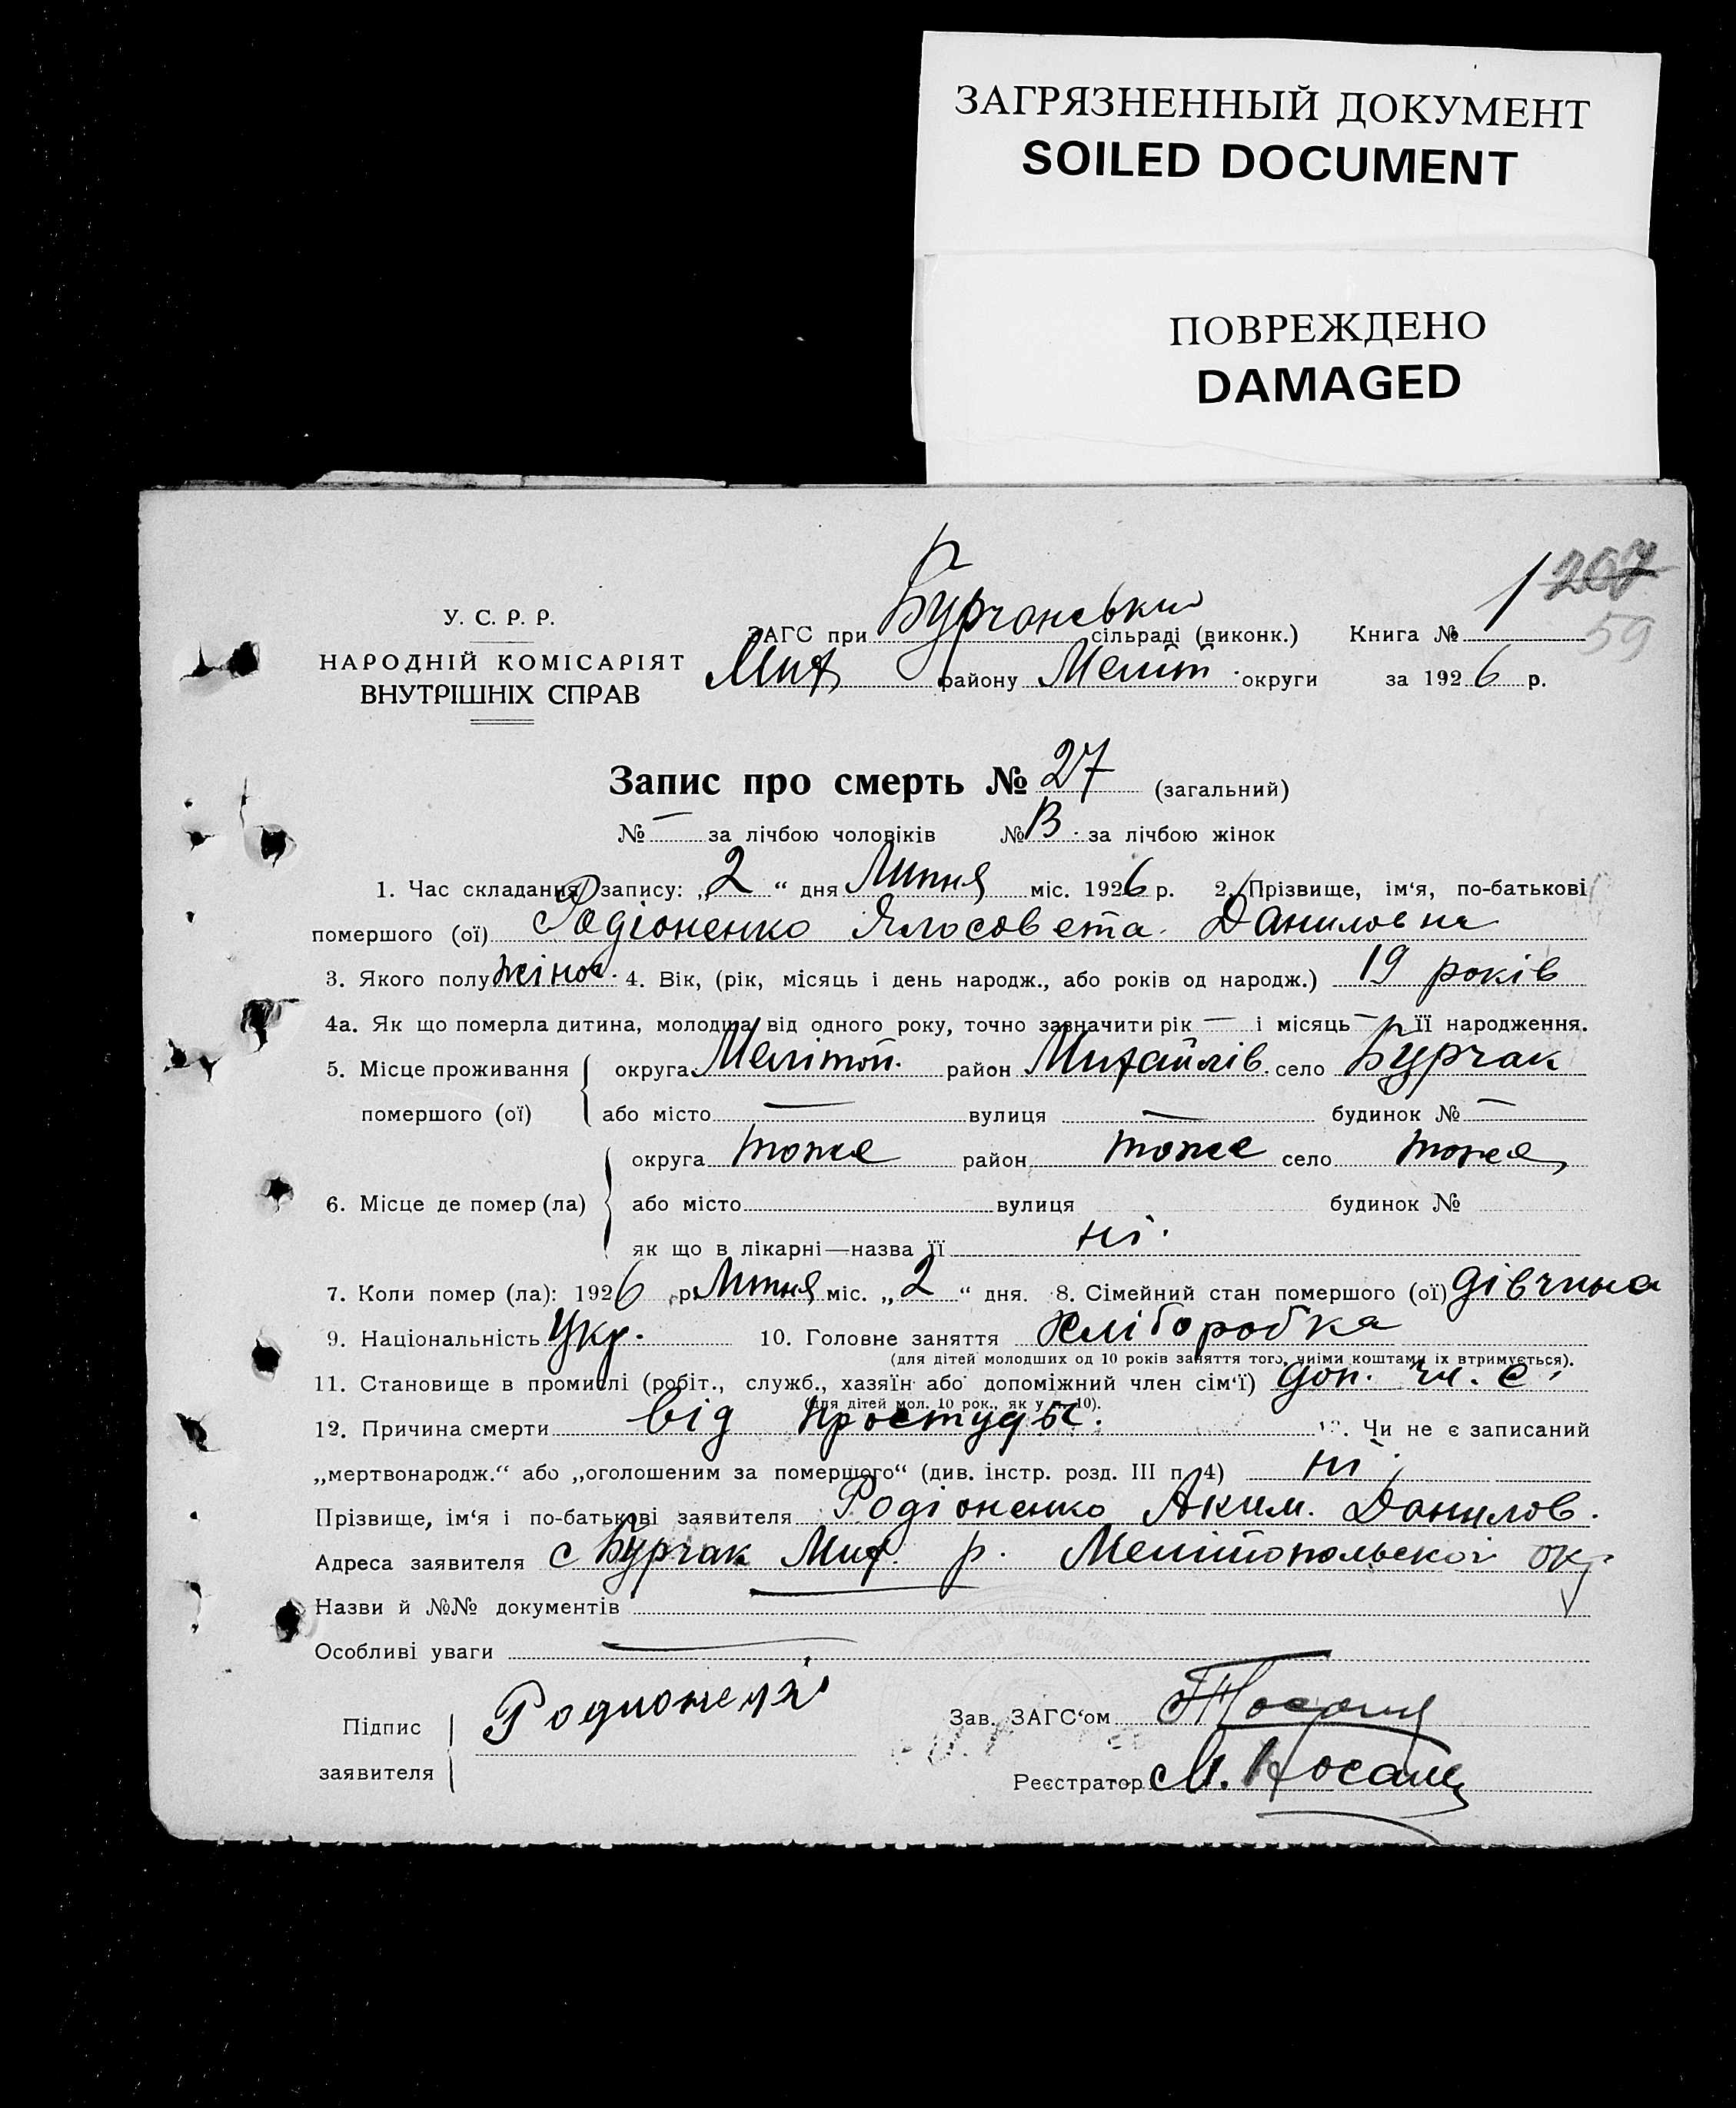 ЗАГРЯЗНЕННЫЙ ДОКУМЕНТ
SOILED DOCUMENT
ПОВРЕЖДЕНО
DAMAGED
1 207
59
У. С. Р. Р.
НАРОДНІЙ КОМІСАРІЯТ
ВНУТРІШНІХ СПРАВ
ЗАГС при Бурчанський сільраді (виконк.) Книга №
Мих району Меліт. округи за 1926 р.
Запис про смерть № 27 (загальний)
№ — за лічбою чоловіків № 13 за лічбою жінок
1. Час складання запису: „2“ дня Липня міс. 1926 р. 2. Прізвище, ім‘я, по-батькові
помершого (ої) Родіоненко Ялосовета Даниловна
3. Якого полу жіноч. 4. Вік, (рік, місяць і день народж., або років од народж.) 19 років
4а. Як що померла дитина, молодша від одного року, точно зазначити рік — і місяць — її народження.
5. Місце проживання помершого (ої) округа Мелітоп. район Михайлів. село Бурчак
або місто — вулиця — будинок № —
6. Місце де помер (ла) округа тоже район тоже село тоже
або місто вулиця будинок №
як що в лікарні—назва її ні.
7. Коли помер (ла): 1926 р. Липня міс. „2“ дня. 8. Сімейний стан помершого (ої) дівчина
9. Національність Укр. 10. Головне заняття Хліборобка
(для дітей молодших од 10 років заняття того, чиіми коштами іх втримується).
11. Становище в промислі (робіт., служб., хазяїн або допоміжний член сім‘ї) доп. чл. с.
(для дітей мол. 10 рок., як у п. 10).
12. Причина смерти від простуды. 13. Чи не є записаний
„мертвонародж.“ або „оголошеним за помершого“ (див. інстр. розд. III п. 4) ні
Прізвище, ім‘я і по-батькові заявителя Родіоненко Аким. Данилов.
Адреса заявителя с Бурчак Мих. р. Мелітопольскої окр
Назви й №№ документів
Особливі уваги
Підпис заявителя
Зав. ЗАГС‘ом
Реєстратор М. Носань